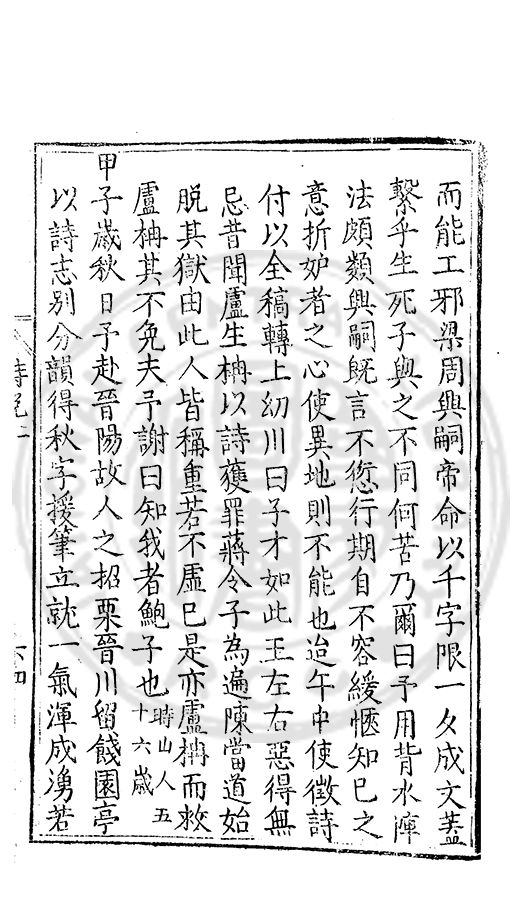 而能工邪梁周興嗣帝命以千字限一夕成文蓋
繫乎生死子與之不同何苦乃爾曰予用背水陣
法頗類興嗣既言不愆行期自不容緩愜知己之
意折妒者之心使異地則不能也迨午中使徵詩
付以全稿轉上幼川曰子才如此王左右惡得無
忌昔聞盧生柟以詩獲罪蔣令子為遍陳當道始
脫其獄由此人皆稱重若不虛己是亦盧柟而救
盧柟其不免夫予謝曰知我者鮑子也時山人五十六歲
甲子歲秋日予赴晉陽故人之招栗晉川留餞園亭
以詩志別分韻得秋字援筆立就一氣渾成湧若
詩說二